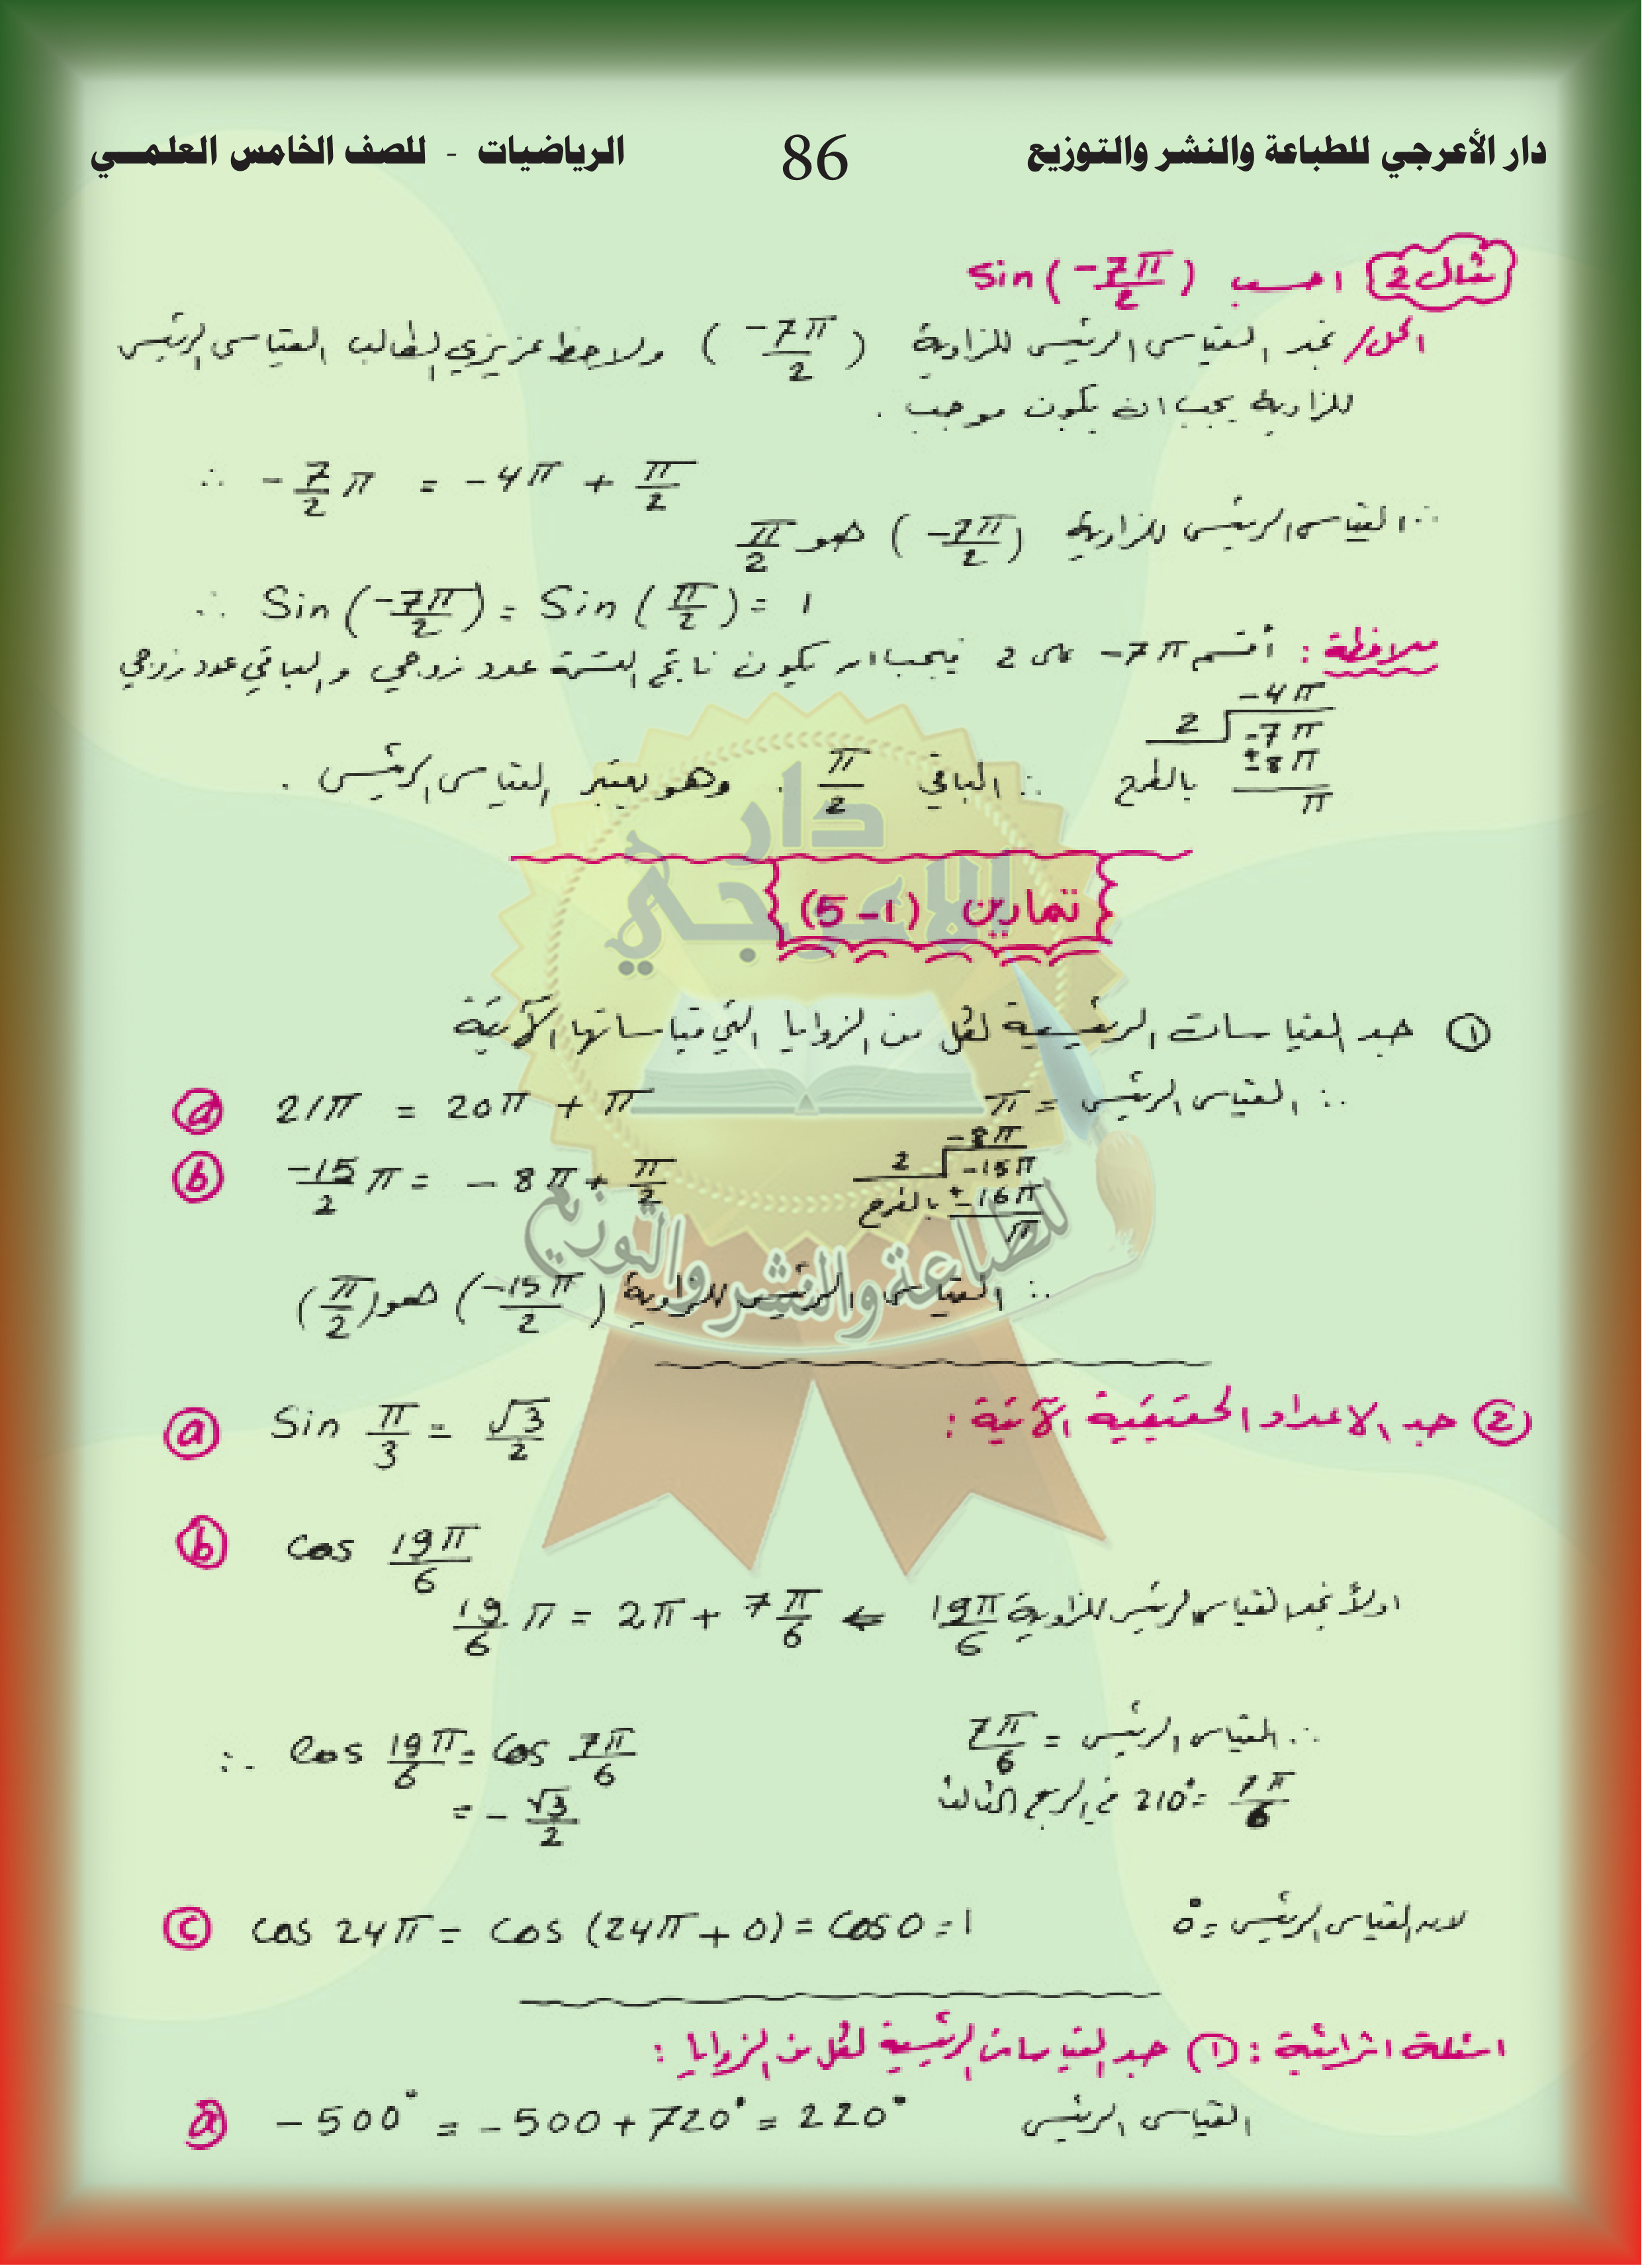 دار الأعرجي للطباعة والنشر والتوزيع 86 الرياضيات - للصف الخامس العلمي
مثال 2 احسب Sin(-7π/2)
الحل/ نجد القياس الرئيس للزاوية (-7π/2) ولاحظ عزيزي الطالب القياس الرئيس
للزاوية يجب ان يكون موجب .
∴ -7/2 π = -4π + π/2
∴ القياس الرئيس للزاوية (-7π/2) هو π/2
∴ Sin(-7π/2) = Sin(π/2) = 1
ملاحظة : أقسم -7π على 2 فيجب ان يكون ناتج القسمة عدد زوجي والباقي عدد زوجي
-4π
2 -7π
±8π بالطرح
π
∴ الباقي π/2 . وهو يعتبر القياس الرئيس .
دار
الاعرجي
للطباعة والنشر والتوزيع
تمارين (5-1)
① جد القياسات الرئيسية لكل من الزوايا التي قياساتها الآتية
a 21π = 20π + π ∴ القياس الرئيس = π
b -15/2 π = -8π + π/2
-8π
2 -15π
±16π بالطرح
π
∴ القياس الرئيس للزاوية (-15π/2) هو (π/2)
② جد الاعداد الحقيقية الآتية :
a Sin π/3 = √3/2
b cos 19π/6
اولاً نجد القياس الرئيس للزاوية 19π/6 ⇐ 19/6 π = 2π + 7π/6
∴ القياس الرئيس = 7π/6
7π/6 = 210° في الربع الثالث
∴ Cos 19π/6 = Cos 7π/6
= - √3/2
c cos 24π = cos (24π + 0) = cos 0 = 1 لان القياس الرئيس = 0°
اسئلة اثرائية : ① جد القياسات الرئيسية لكل من الزوايا :
a -500° = -500 + 720° = 220° القياس الرئيس